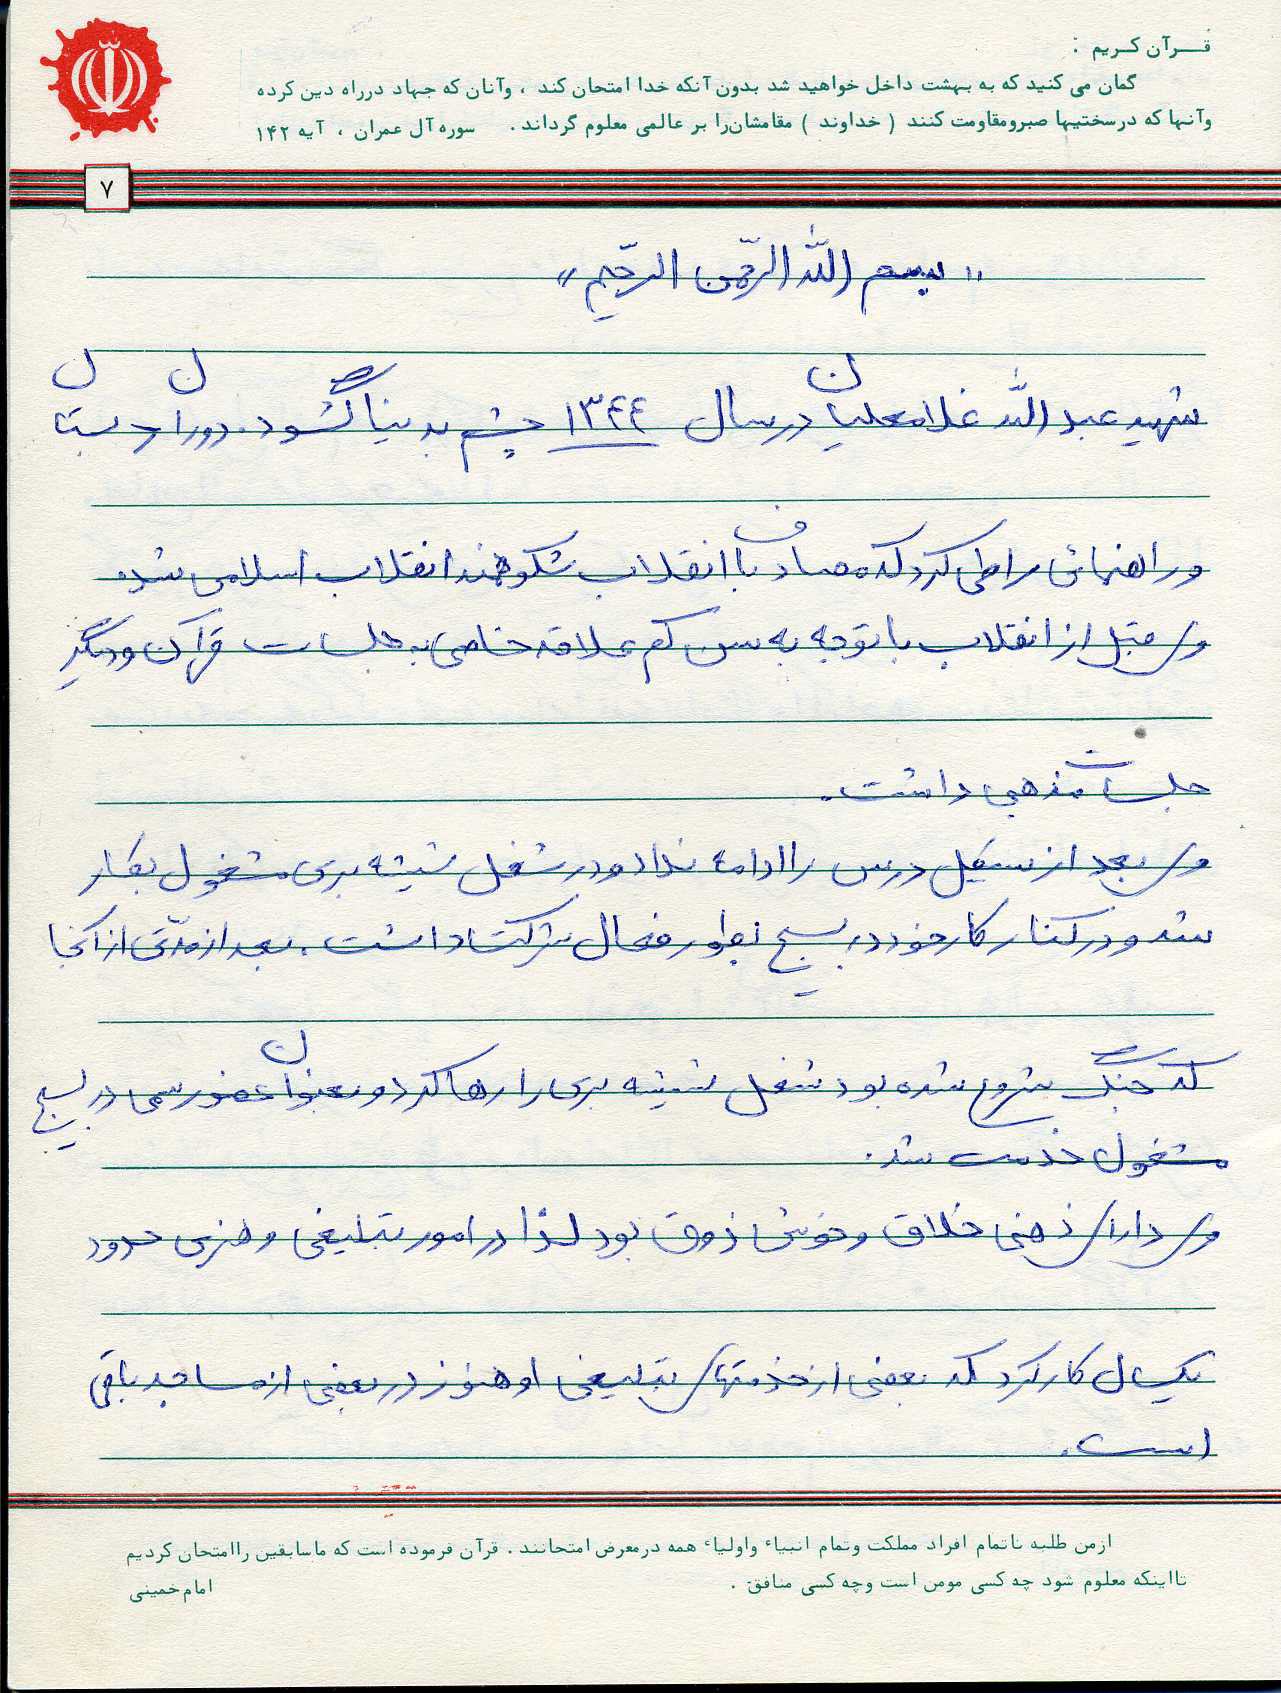 قـــرآن کـریم :
گمان می کنید که به بهشت داخل خواهید شد بدون آنکه خدا امتحان کند ، وآنان که جهاد درراه دین کرده
وآنها که درسختیها صبرومقاومت کنند ( خداوند ) مقامشان‌را بر عالمی معلوم گرداند . سوره آل عمران ، آیه ۱۴۲
۷
" بسم الله الرحمن الرحیم "
شهید عبدالله غلامعلیان در سال ۱۳۴۴ چشم به دنیا گشود. دوران دبستان
و راهنمائی را طی کرد که مصادف با انقلاب شکوهمند انقلاب اسلامی شد.
وی قبل از انقلاب با توجه به سن کم علاقه خاصی به جلسات قرآن و دیگر
جلسات مذهبی داشت.
وی بعد از سیکل درس را ادامه نداد و در شغل شیشه بری مشغول بکار
شد و در کنار کار خود در بسیج بطور فعال شرکت داشت. بعد از مدّتی از آنجا
که جنگ شروع شده بود شغل شیشه بری را رها کرد و بعنوان عضو رسمی در بسیج
مشغول خدمت شد.
وی دارای ذهنی خلاق و خوش ذوق بود لذا در امور تبلیغی و هنری حدود
یکسال کار کرد که بعضی از خدمتهای تبلیغی او هنوز در بعضی از مساجد باقی
است.
ازمن طلبه تاتمام افراد مملکت وتمام انبیاء واولیاء همه درمعرض امتحانند . قرآن فرموده است که ماسابقین راامتحان کردیم
تااینکه معلوم شود چه کسی مومن است وچه کسی منافق . امام خمینی